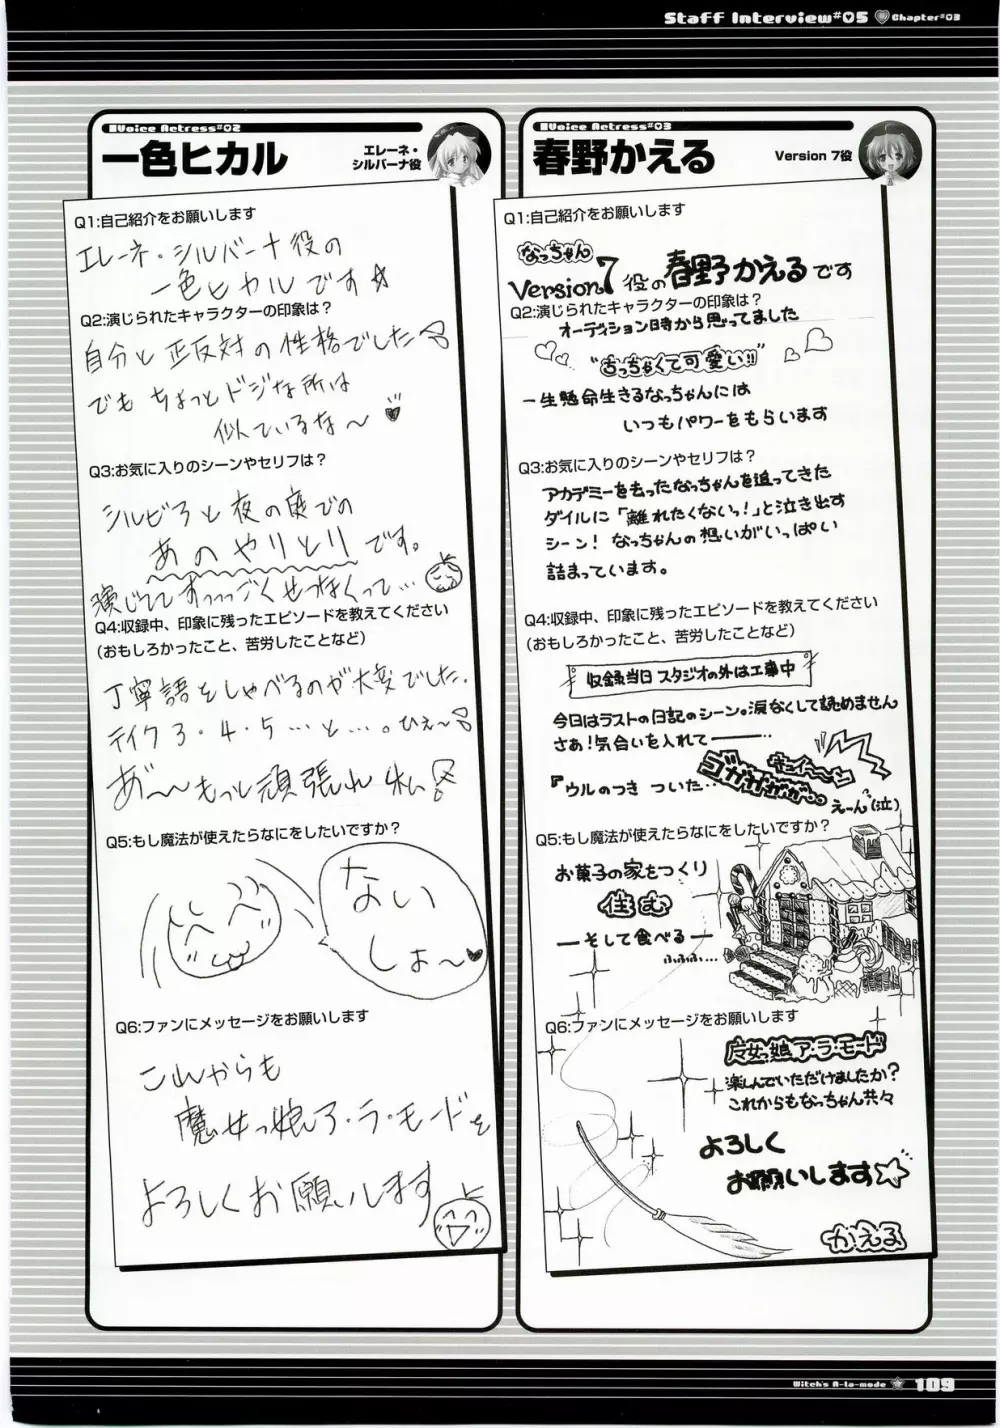 Staff Interview#05 Chapter#03
Voice Actress#02
一色ヒカル
エレーネ・
シルバーナ役
Q1:自己紹介をお願いします
エレーネ・シルバーナ役の
一色ヒカルです☆
Q2:演じられたキャラクターの印象は？
自分と正反対の性格でした
でもちょっとドジな所は
似ているな～♥
Q3:お気に入りのシーンやセリフは？
シルビアと夜の庭での
あのやりとりです。
演じててすっっっごくせつなくって…
Q4:収録中、印象に残ったエピソードを教えてください
（おもしろかったこと、苦労したことなど）
丁寧語をしゃべるのが大変でした.
テイク3・4・5…と…。ひぇ～
あ゛～もっと頑張れ私
Q5:もし魔法が使えたらなにをしたいですか？
ない
しょ～♥
Q6:ファンにメッセージをお願いします
これからも
魔女っ娘ア・ラ・モードを
よろしくお願いします
Voice Actress#03
春野かえる
Version 7役
Q1:自己紹介をお願いします
なっちゃん
Version7役の春野かえるです
Q2:演じられたキャラクターの印象は？
オーディション時から思ってました
“ちっちゃくて可愛い!!”
一生懸命生きるなっちゃんには
いつもパワーをもらいます
Q3:お気に入りのシーンやセリフは？
アカデミーを去ったなっちゃんを追ってきた
ダイルに「離れたくないっ!」と泣き出す
シーン! なっちゃんの想いがいっぱい
詰まっています。
Q4:収録中、印象に残ったエピソードを教えてください
（おもしろかったこと、苦労したことなど）
収録当日 スタジオの外は工事中
今日はラストの日記のシーン。涙なくして読めません
さぁ!気合いを入れて―――…
『ウルのつき ついた…
ゴガガガガ…
キュイーン
えーん?(泣)
Q5:もし魔法が使えたらなにをしたいですか？
お菓子の家をつくり
住む
―そして食べる―
ふふふ…
Q6:ファンにメッセージをお願いします
魔女っ娘ア・ラ・モード
楽しんでいただけましたか?
これからもなっちゃん共々
よろしく
お願いします☆
かえる
Witch's A-la-mode 109